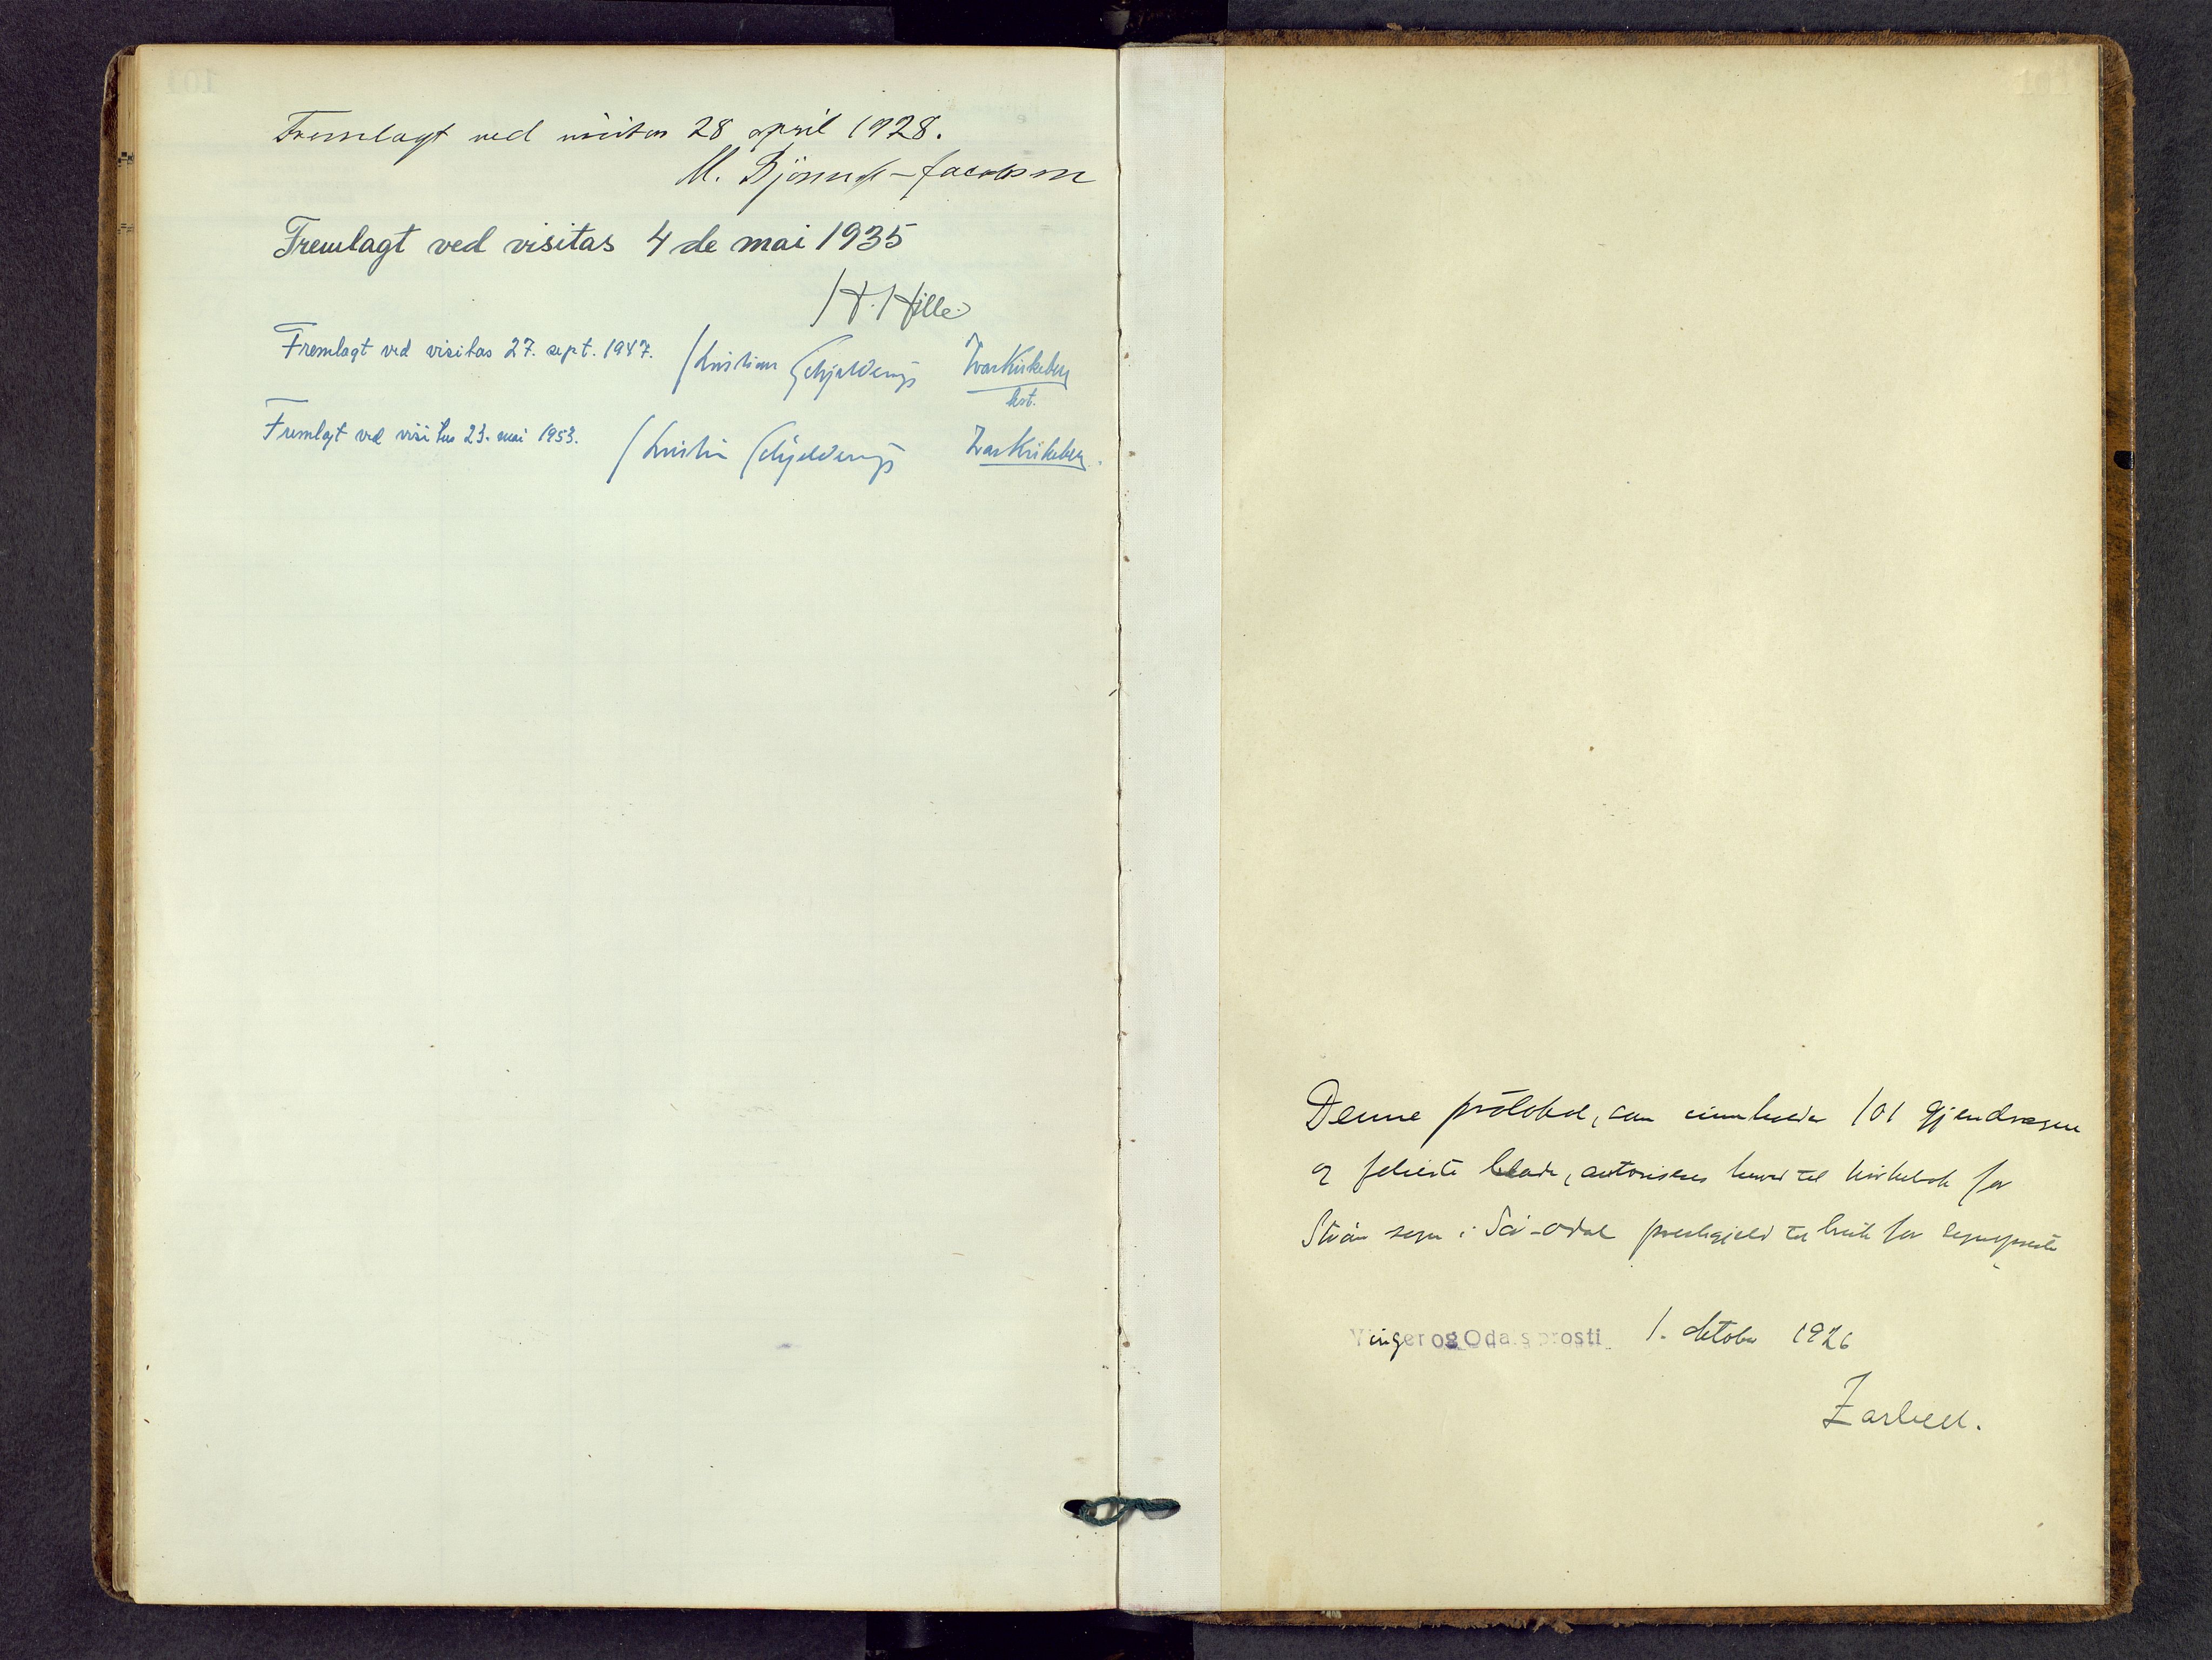 Fremlagt ved visitas 28 april 1928.
M. Bjønnes-Jacobsen
Fremlagt ved visitas 4 de mai 1935
H. Hille
Fremlagt ved visitas 27. sept. 1947. Kristian Schjelderup Ivar Kirkeberg
kst.
Fremlagt ved visitas 23. mai 1953. Kristian Schjelderup Ivar Kirkeberg.
Denne protokol, som inneholder 101 gjendragne
og folierte blade, autoriseres herved til kirkebok for
Strøm sogn i Sør-Odal prestegjeld til bruk for sogneprest
Vinger og Odals prosti 1. oktober 1926